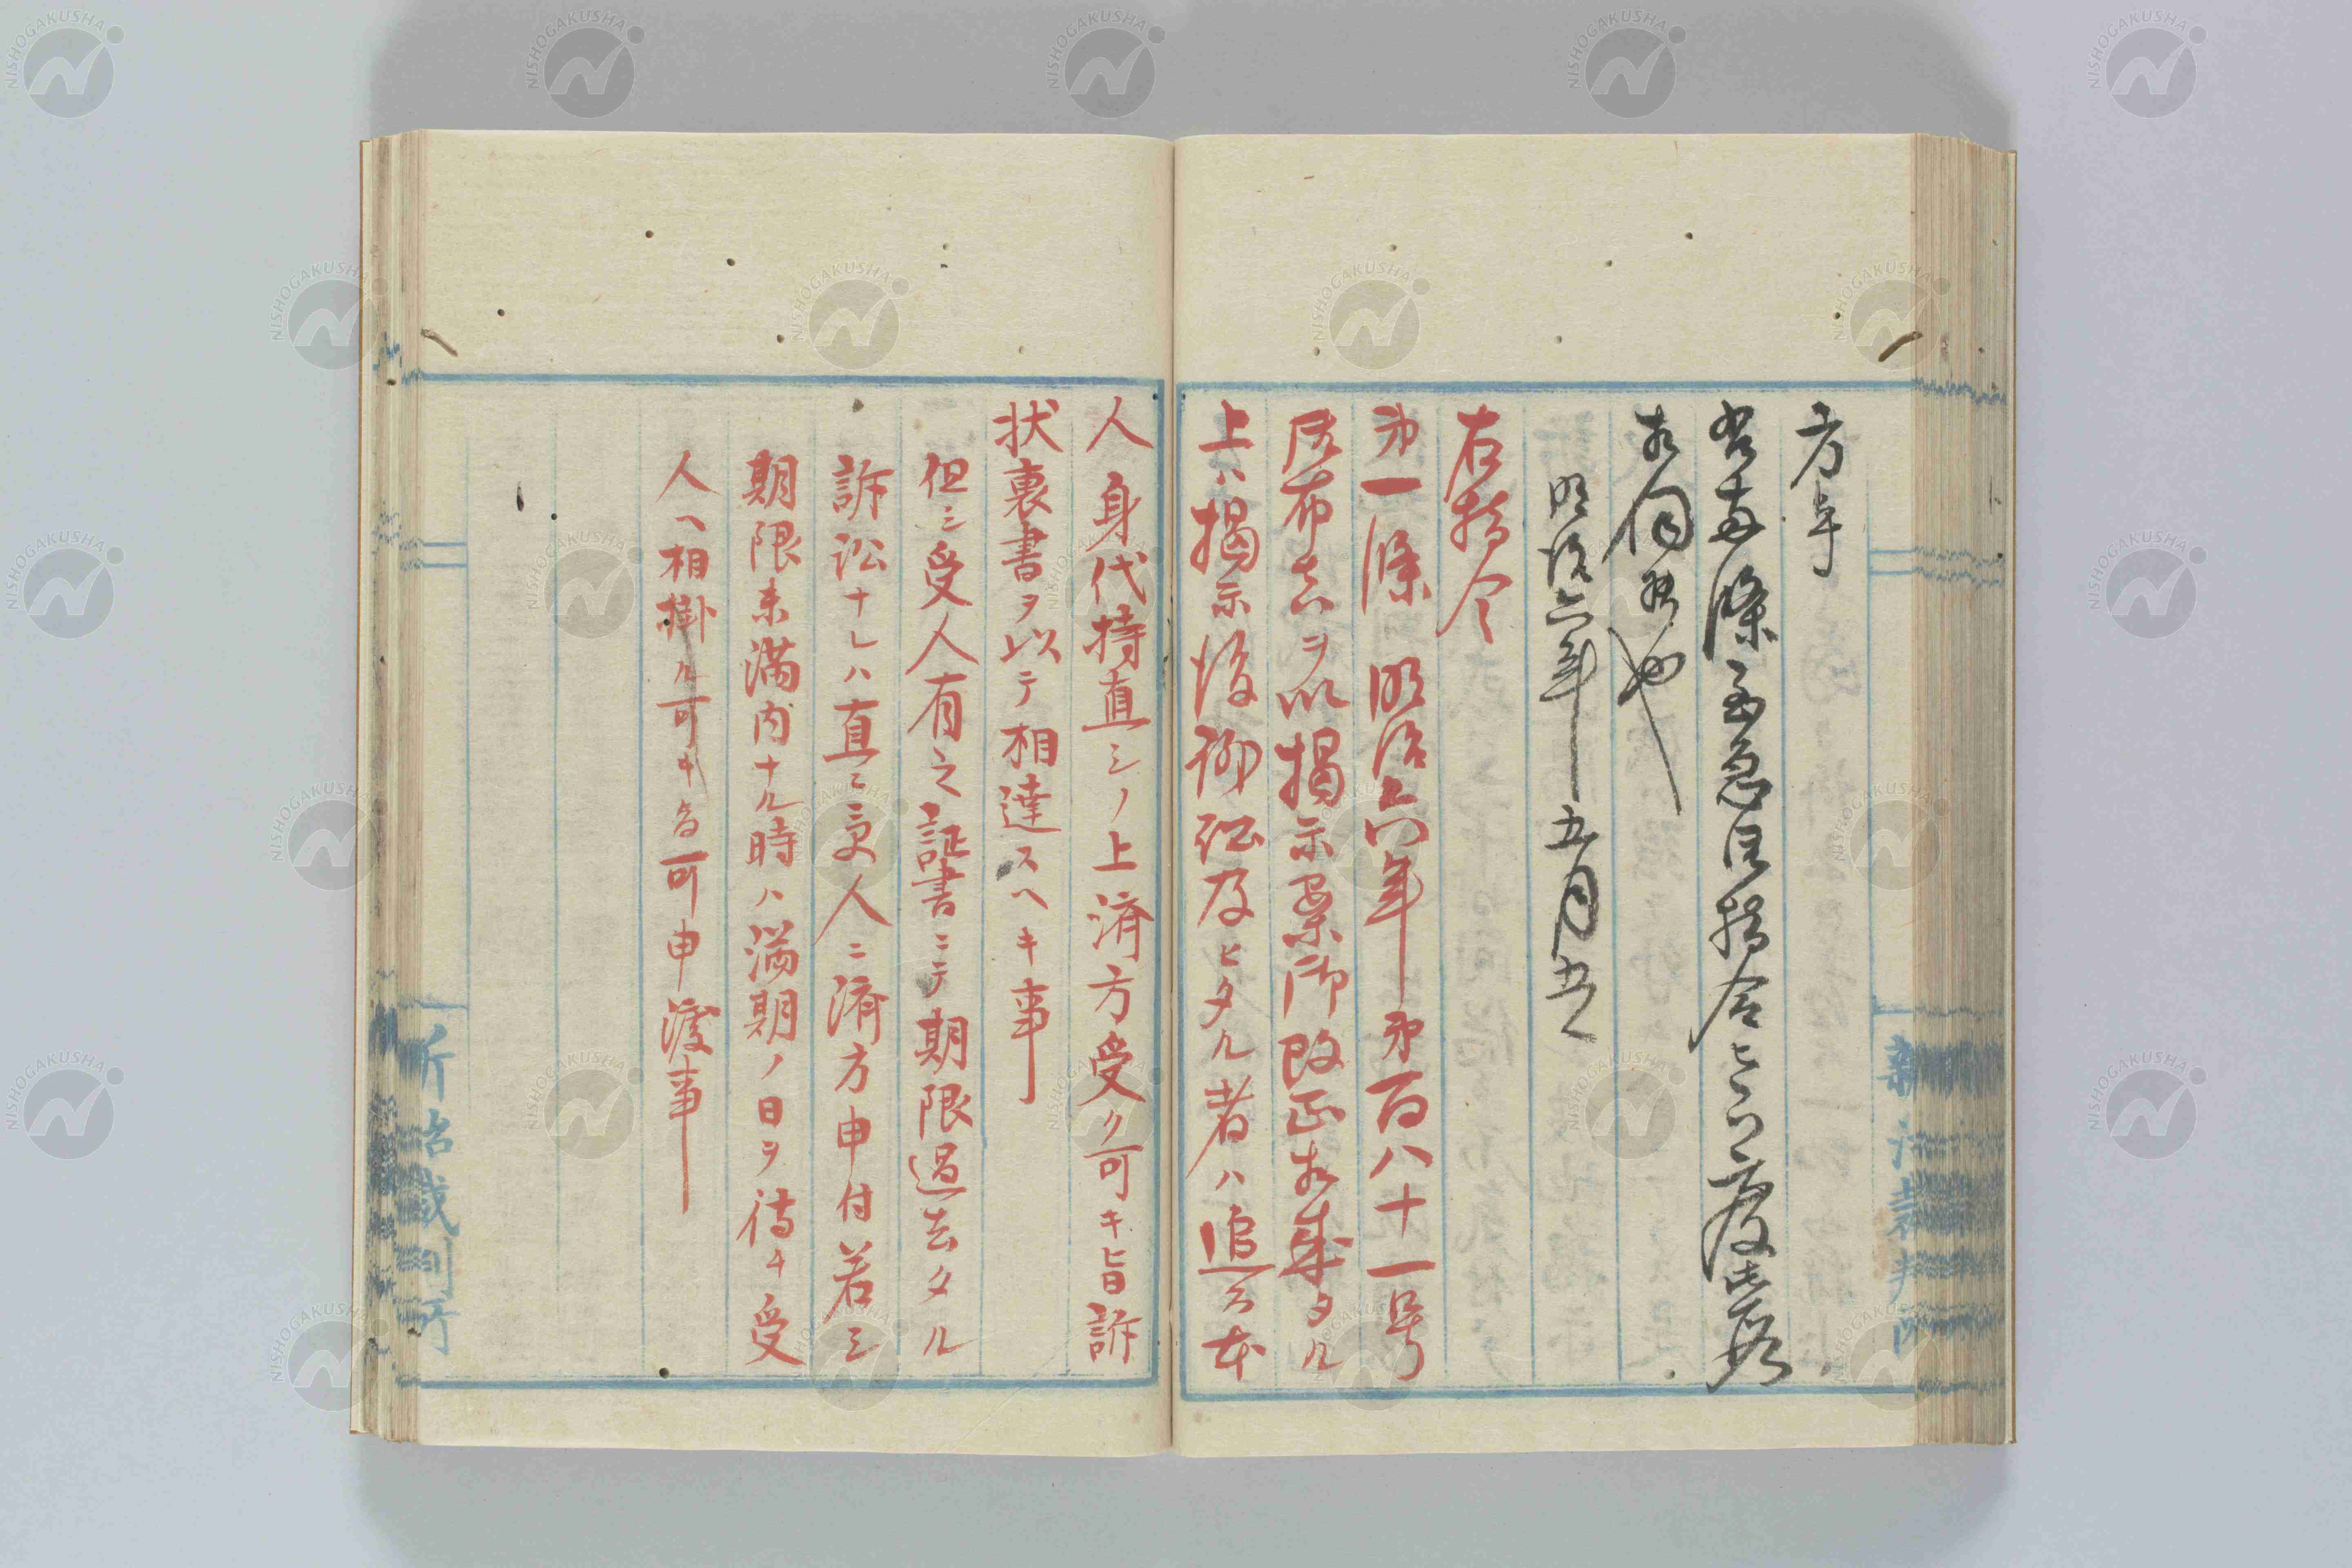 方事
右両條至急御指令
相伺候也
明治六年五月五日
右指令
第一條 明治六年第百八十一号
御布告ヲ以掲示案御改正相成タル
上ハ掲示後御
及ヒタル者ハ追テ本
人身代持直シノ上済方受ク可キ旨訴
状裏書ヲ以テ相達スヘキ事
但シ受人有之証書ニテ期限過去タル
訴訟ナレハ直ニ受人ニ済方申付若シ
期限未満内ナル時ハ満期ノ日ヲ待チ受
人ヘ相掛ル可キ旨可申渡事
新治裁判所
新治裁判所
NISHOGAKUSHA